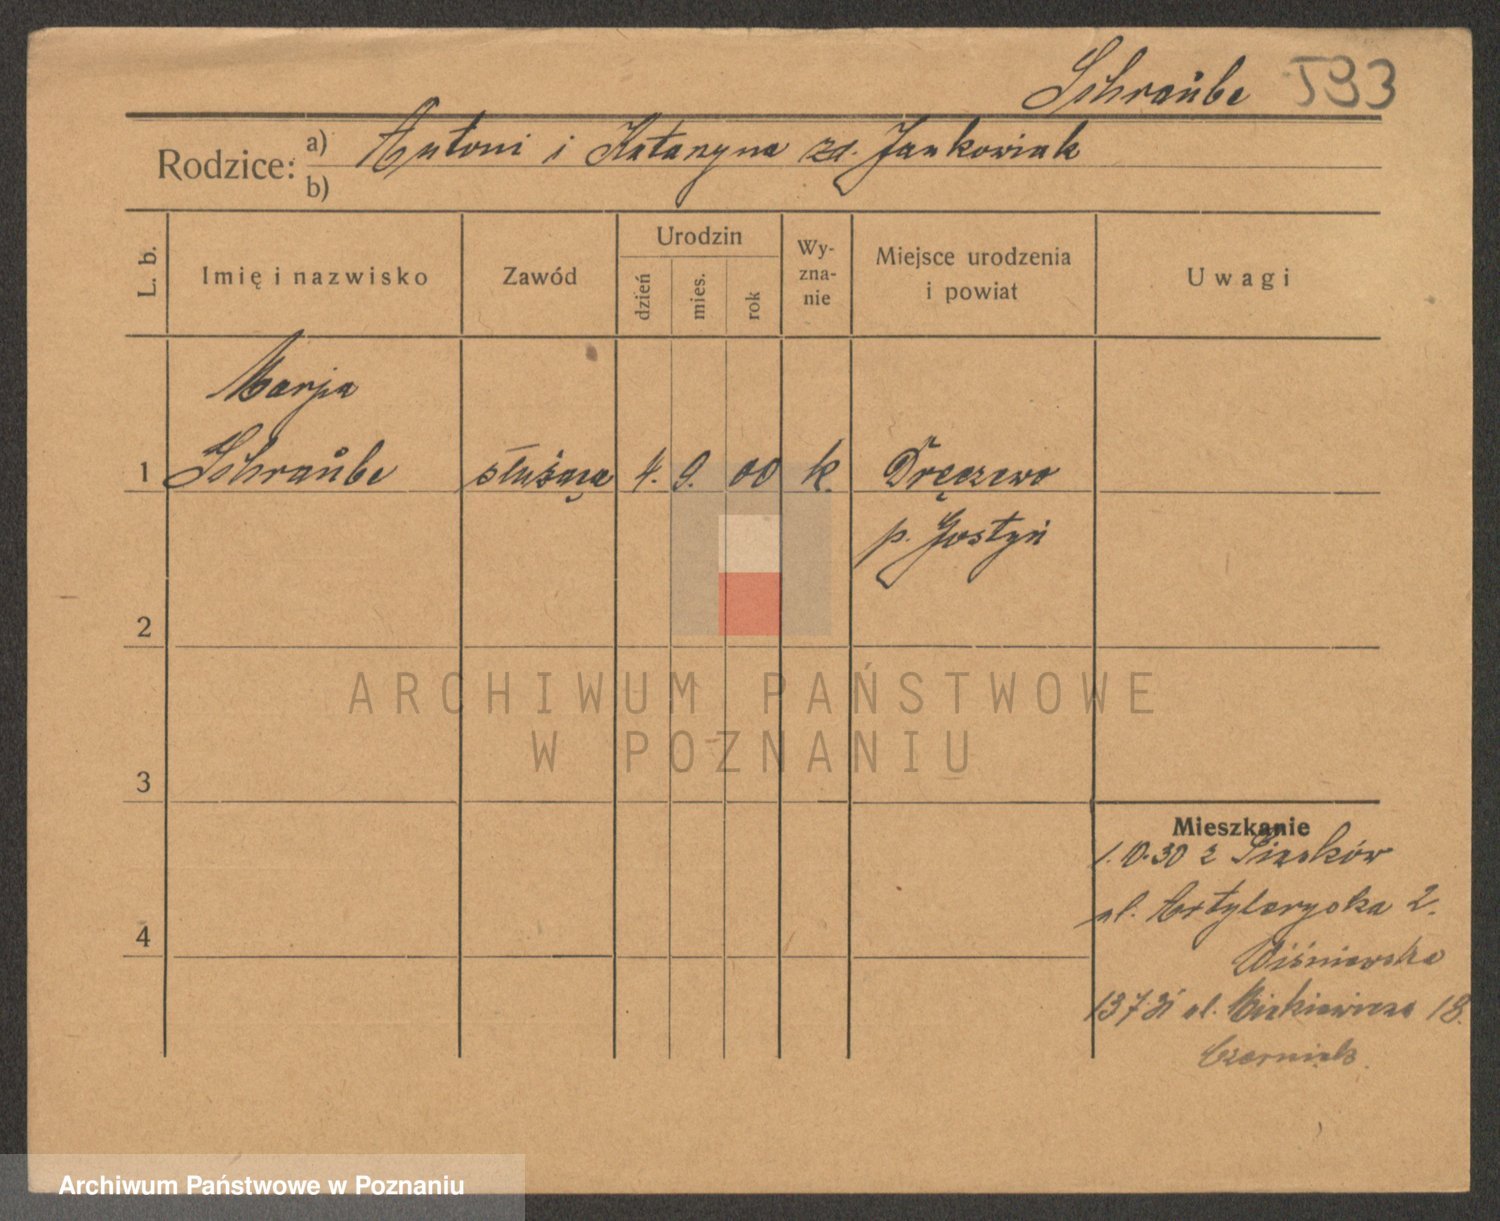 Schraube 593
Rodzice: a) Antoni i Katarzyna zd. Jankowiak
b)
L. b.
Imię i nazwisko
Zawód
Urodzin
dzień
mies.
rok
Wy-
zna-
nie
Miejsce urodzenia
i powiat
Uwagi
Marja
1 Schraube służąca 4. 9. 00 k. Dręczewo
p. Gostyń
2
ARCHIWUM PAŃSTWOWE
W POZNANIU
3
Mieszkanie
1.10.30 z
ul. Artyleryska 2.
4
Wiśniewska
13 7 31 ul. Mickiewicza 18.
Czerniak
Archiwum Państwowe w Poznaniu